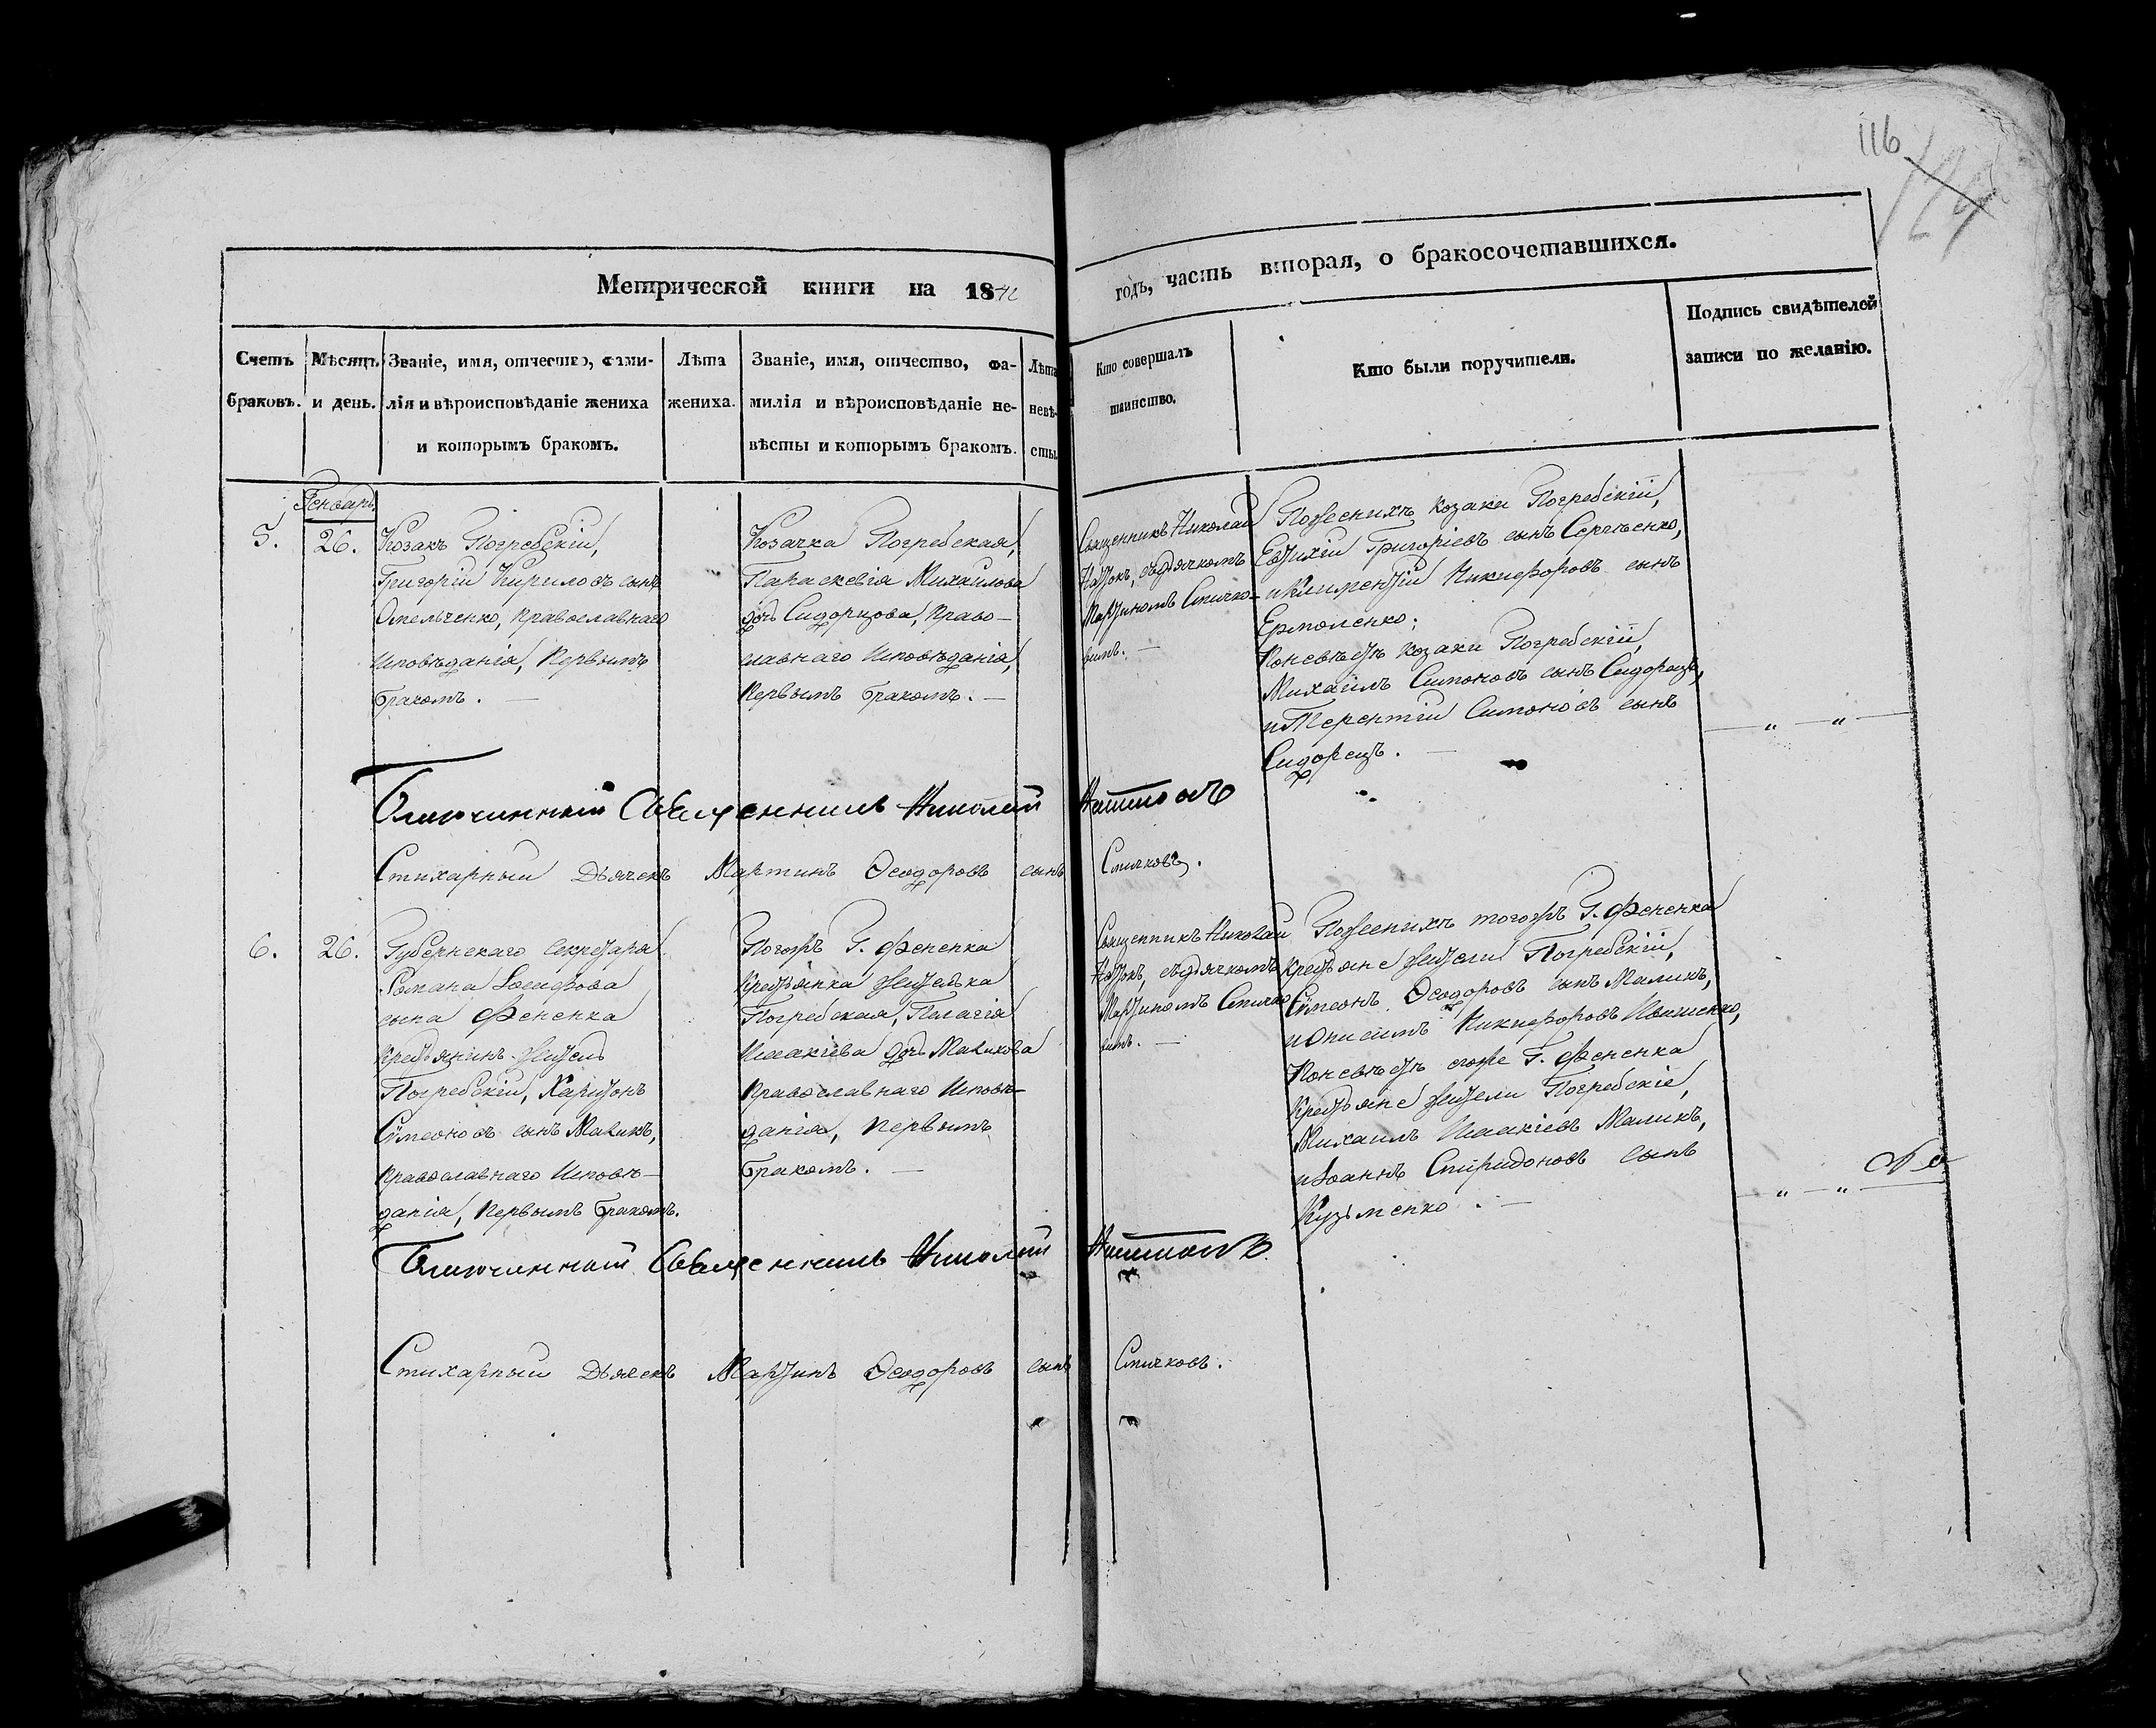 116
124
Метрической книги на 1842
годъ, часть вторая, о бракосочетавшихся.
Счетъ браковъ.
Мѣсяцъ и день.
Званіе, имя, отчество, фами-
лія и вѣроисповѣданіе жениха
и которымъ бракомъ.
Лѣта
жениха.
Званіе, имя, отчество, фа-
милія и вѣроисповѣданіе не-
вѣсты и которымъ бракомъ.
Лѣта
невѣ-
сты.
Кто совершалъ
таинство.
Кто были поручители.
Подпись свидѣтелей
записи по желанію.
Генварь
5.
26.
Козакъ Погребскій,
Григорій Кириловъ сынъ
Омельченко, православнаго
исповѣданія, первымъ
бракомъ. —
Козачка Погребская,
Параскевія Михаилова
дочь Сидорцова, право-
славнаго исповѣданія,
первымъ бракомъ. —
Священникъ Николай
съ дячкомъ
Мартиномъ Спичко-
вымъ. —
По женихѣ козаки Погребскіи,
Евтихій Григоріевъ сынъ Сергѣенко,
и Климентій Никифоровъ сынъ
Ермоленко;
По невѣстѣ козаки Погребскіи,
Михаилъ Симоновъ сынъ Сидорецъ,
и Терентій Симоновъ сынъ
Сидорецъ. —
— „ — „ —
Благочинный Священникъ Николай
Стихарный Дьячекъ Мартинъ Ѳеодоровъ сынъ Спичковъ.
6.
26.
Губернскаго секретаря
Романа Іосифова
сына Фененка
крестьянинъ житель
Погребскій, Харитонъ
Сѷмеоновъ сынъ Маликъ,
православнаго исповѣ-
данія, первымъ бракомъ.
Г. Фененка
крестьянка жителька
Погребская, Пелагія
Исаакіева дочь Маликова
православнаго исповѣ-
данія, первымъ
бракомъ. —
Священникъ Николай
съ дячкомъ
Мартиномъ Спичко
вымъ. —
По женихѣ тогожъ Г. Фененка
крестьяне жители Погребскіи,
Сѷмеонъ Ѳеодоровъ сынъ Маликъ,
и Онисимъ Никифоровъ Ивашенко,
По невѣстѣ егоже Г. Фененка
крестьяне жители Погребскіе,
Михаилъ Исаакіевъ Маликъ,
и Іоаннъ Спиридоновъ сынъ
Кузьменко. —
— „ — „ —
Благочинный Священникъ Николай
Стихарный Дьячекъ Мартинъ Ѳеодоровъ сынъ Спичковъ.